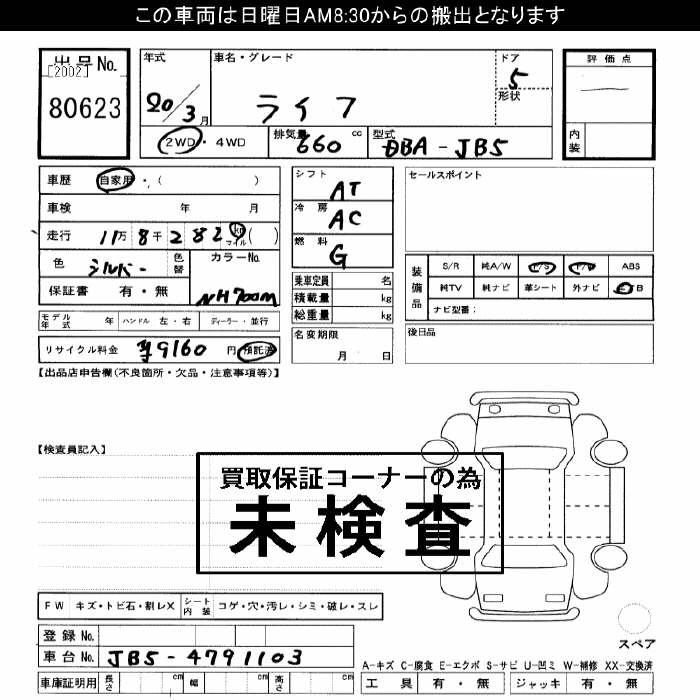 この車両は日曜日AM8:30からの搬出となります
出品No.
[2002]
80623
年式
20/3月
車名・グレード
ライフ
ドア
5
形状
評価点
内装
2WD・4WD
排気量 660 cc
型式 DBA-JB5
車歴 自家用・( )
車検 年 月
走行 11万 8千 282 km マイル ( )
色 シルバー 色替
カラーNo. NH700M
保証書 有・無
モデル年式 年 ハンドル 左・右 ディーラー・並行
リサイクル料金 ¥9160 円 預託済
シフト AT
冷房 AC
燃料 G
乗車定員 名
積載量 kg
総重量 kg
名変期限
月 日
セールスポイント
装備品
S/R 純A/W P/S P/W ABS
純TV 純ナビ 革シート 外ナビ
ナビ型番:
後日品
【出品店申告欄(不良箇所・欠品・注意事項等)】
【検査員記入】
買取保証コーナーの為
未検査
FW キズ・トビ石・割レX シート内装 コゲ・穴・汚レ・シミ・破レ・スレ
登録No.
車台No. JB5-4791103
車庫証明用 長さ cm 幅 cm 高さ cm
スペア
A-キズ C-腐食 E-エクボ S-サビ U-凹ミ W-補修 XX-交換済
工具 有・無 ジャッキ 有・無